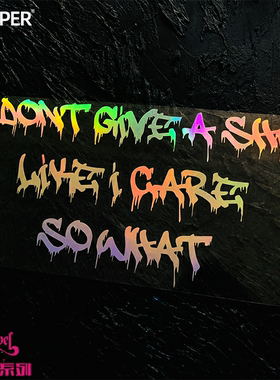 PER®
DONT GIVE A SH
LIKE i CARE
SO WHAT
系列